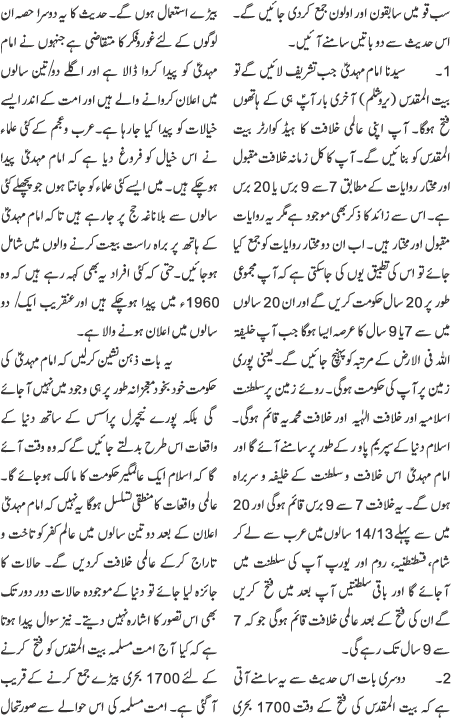 سب قومیں سابقون اور اولون جمع کر دی جائیں گے۔
اس حدیث سے دو باتیں سامنے آئیں۔
1۔ سیدنا امام مہدیؑ جب تشریف لائیں گے تو
بیت المقدس (یروشلم) آخری بار آپؑ ہی کے ہاتھوں
فتح ہوگا۔ آپ اپنی عالمی خلافت کا ہیڈ کوارٹر بیت
المقدس کو بنائیں گے۔ آپ کا کل زمانہ خلافت مقبول
اور مختار روایات کے مطابق 7 سے 9 برس یا 20 برس
ہے۔ اس سے زائد کا ذکر بھی موجود ہے مگر یہ روایات
مقبول اور مختار ہیں۔ اب ان دو مختار روایات کو جمع کیا
جائے تو اس کی تطبیق یوں کی جاسکتی ہے کہ آپ مجموعی
طور پر 20 سال حکومت کریں گے اور ان 20 سالوں
میں سے 7 یا 9 سال کا عرصہ ایسا ہوگا جب آپ خلیفۃ
اللہ فی الارض کے مرتبہ کو پہنچ جائیں گے۔ یعنی پوری
زمین پر آپ کی حکومت ہوگی۔ روئے زمین پر سلطنت
اسلامیہ اور خلافت الٰہیہ اور خلافت محمدیہ قائم ہوگی۔
اسلام دنیا کے سپریم پاور کے طور پر سامنے آئے گا اور
امام مہدیؑ اس خلافت و سلطنت کے خلیفہ و سربراہ
ہوں گے۔ یہ خلافت 7 سے 9 برس قائم ہوگی اور 20
میں سے پہلے 13/14 سالوں میں عرب سے لے کر
شام، قسطنطنیہ، روم اور یورپ آپ کی سلطنت میں
آجائے گا اور باقی سلطنتیں آپ بعد میں فتح کریں
گے ان کی فتح کے بعد عالمی خلافت قائم ہوگی جو کہ 7
سے 9 سال تک رہے گی۔
2۔ دوسری بات اس حدیث سے یہ سامنے آتی
ہے کہ بیت المقدس کی فتح کے وقت 1700 بحری
بیڑے استعمال ہوں گے۔ حدیث کا یہ دوسرا حصہ ان
لوگوں کے لئے غور و فکر کا متقاضی ہے جنہوں نے امام
مہدیؑ کو پیدا کروا ڈالا ہے اور اگلے دو/تین سالوں
میں اعلان کروانے والے ہیں اور امت کے اندر ایسے
خیالات کو پیدا کیا جا رہا ہے۔ عرب و عجم کے کئی علماء
نے اس خیال کو فروغ دیا ہے کہ امام مہدیؑ پیدا
ہوچکے ہیں۔ میں ایسے کئی علماء کو جانتا ہوں جو پچھلے کئی
سالوں سے بلاناغہ حج پر جا رہے ہیں تاکہ امام مہدیؑ
کے ہاتھ پر براہ راست بیعت کرنے والوں میں شامل
ہوجائیں۔ حتی کہ کئی افراد یہ بھی کہہ رہے ہیں کہ وہ
1960ء میں پیدا ہوچکے ہیں اور عنقریب ایک/ دو
سالوں میں اعلان ہونے والا ہے۔
یہ بات ذہن نشین کرلیں کہ امام مہدیؑ کی
حکومت خود بخود معجزانہ طور پر ہی وجود میں نہیں آجائے
گی بلکہ پورے نیچرل پراسس کے ساتھ دنیا کے
واقعات اس طرح بدلتے جائیں گے کہ وہ وقت آئے
گا کہ اسلام ایک عالمگیر حکومت کا مالک ہوجائے گا۔
عالمی واقعات کا منطقی تسلسل ہوگا یہ نہیں کہ امام مہدیؑ
اعلان کے بعد دو تین سالوں میں عالم کفر کو تاخت و
تاراج کرکے عالمی خلافت کردیں گے۔ حالات کا
جائزہ لیا جائے تو دنیا کے موجودہ حالات دور دور تک
بھی اس تصور کا اشارہ نہیں دیتے۔ نیز سوال پیدا ہوتا
ہے کہ کیا آج امت مسلمہ بیت المقدس کو فتح کرنے
کے لئے 1700 بحری بیڑے جمع کرنے کے قریب
آگئی ہے۔ امت مسلمہ کی اس حوالے سے صورتحال